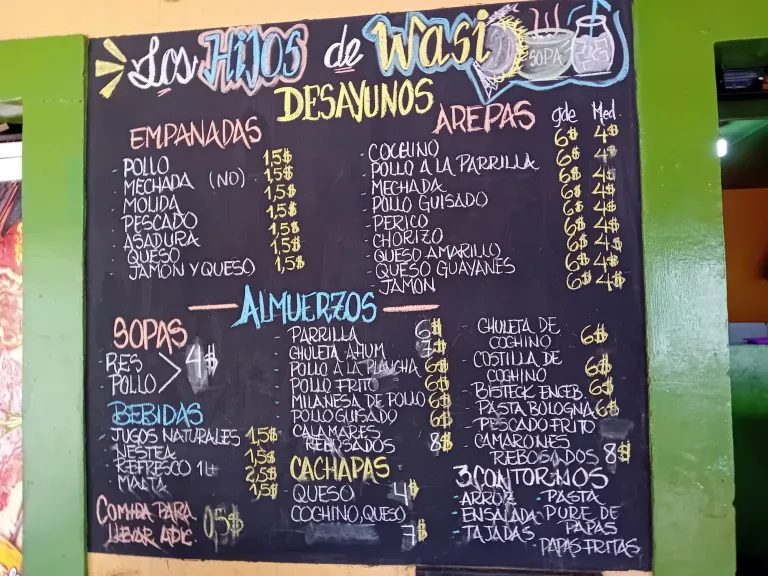 Los Hijos de Wasi
SOPA
DESAYUNOS
EMPANADAS
- POLLO 1,5$
- MECHADA (NO) 1,5$
- MOLIDA 1,5$
- PESCADO 1,5$
- ASADURA 1,5$
- QUESO 1,5$
- JAMON Y QUESO 1,5$
AREPAS gde Med.
- COCHINO 6$ 4$
- POLLO A LA PARRILLA 6$ 4$
- MECHADA 6$ 4$
- POLLO GUISADO 6$ 4$
- PERICO 6$ 4$
- CHORIZO 6$ 4$
- QUESO AMARILLO 6$ 4$
- QUESO GUAYANES 6$ 4$
- JAMON 6$ 4$
ALMUERZOS
SOPAS
RES
POLLO > 4$
BEBIDAS
- JUGOS NATURALES 1,5$
- NESTEA 1,5$
- REFRESCO 1 Lt 2,5$
- MALTA 1,5$
COMIDA PARA
LLEVAR ADIC. 0,5$
- PARRILLA 6$
- CHULETA AHUM 7$
- POLLO A LA PLANCHA 6$
- POLLO FRITO 6$
- MILANESA DE POLLO 6$
- POLLO GUISADO 6$
- CALAMARES
REBOSADOS 8$
CACHAPAS
- QUESO 4$
- COCHINO, QUESO
7$
- CHULETA DE
COCHINO 6$
- COSTILLA DE
COCHINO 6$
- BISTECK ENCEB. 6$
- PASTA BOLOGNA 6$
- PESCADO FRITO
- CAMARONES
REBOSADOS 8$
3 CONTORNOS
- ARROZ - PASTA
- ENSALADA - PURE DE
PAPAS
- TAJADAS - PAPAS FRITAS